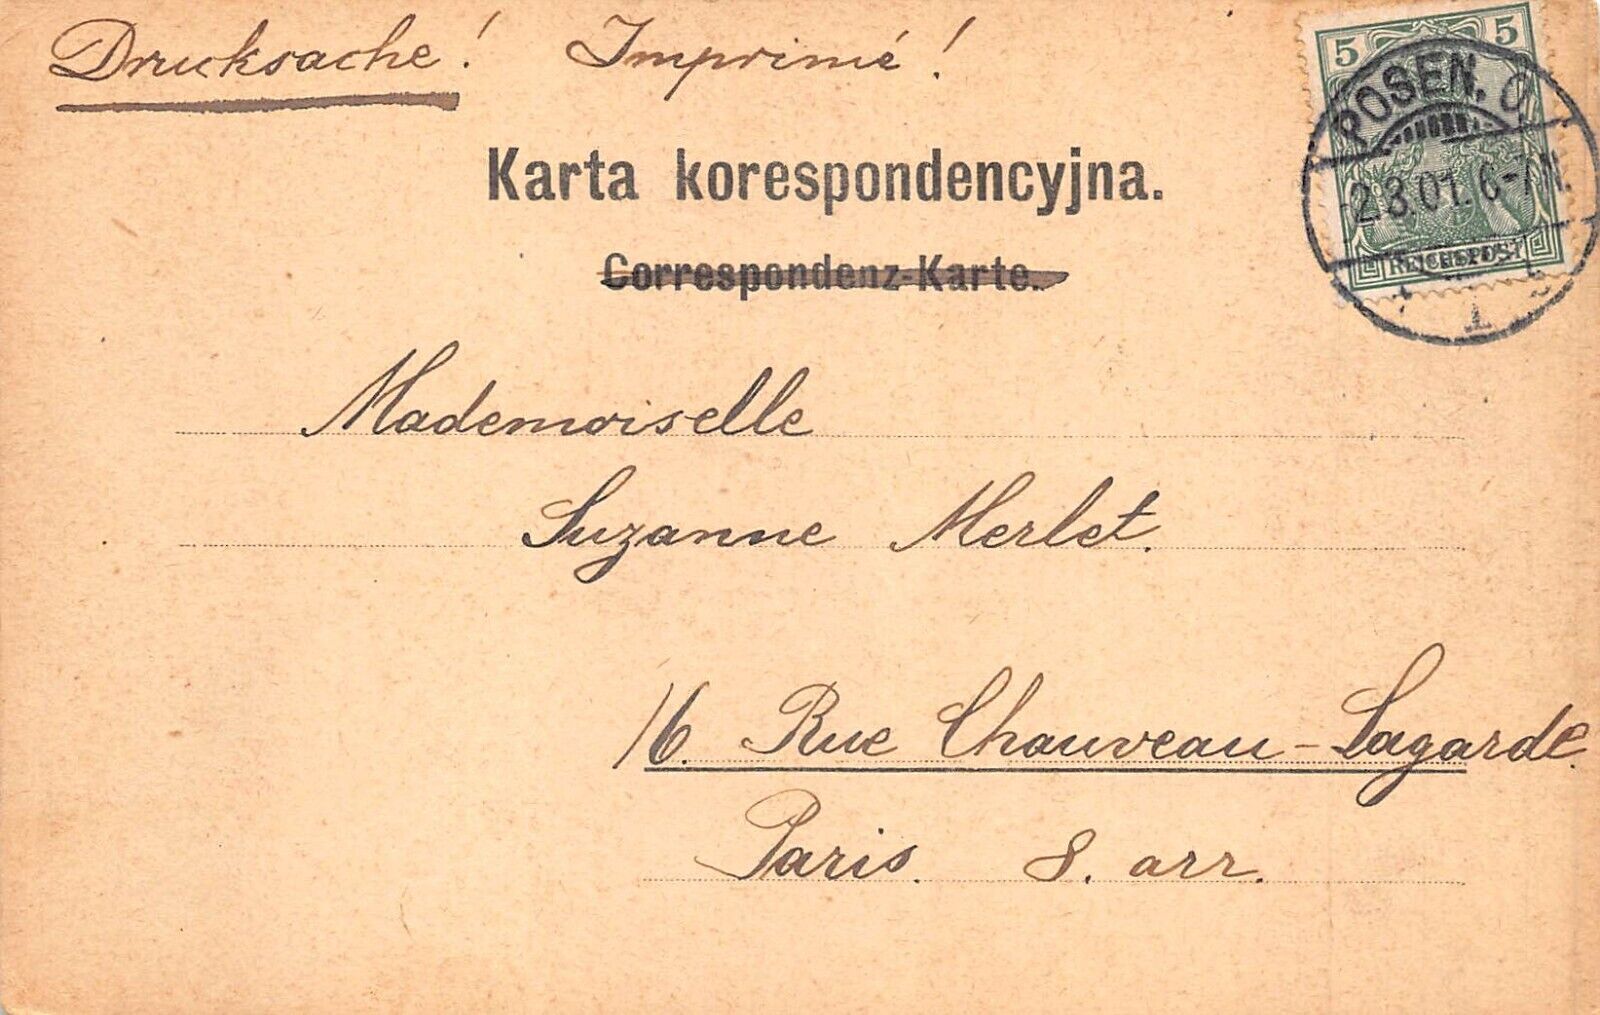 Drucksache! Imprimé!
5 5
POSEN. O.
Karta korespondencyjna.
-2.3.01. 6-7N.
REICHSPOST
Correspondenz-Karte.
Mademoiselle
Suzanne Merlet.
16. Rue Chauveau-Lagarde.
Paris. 8. arr.